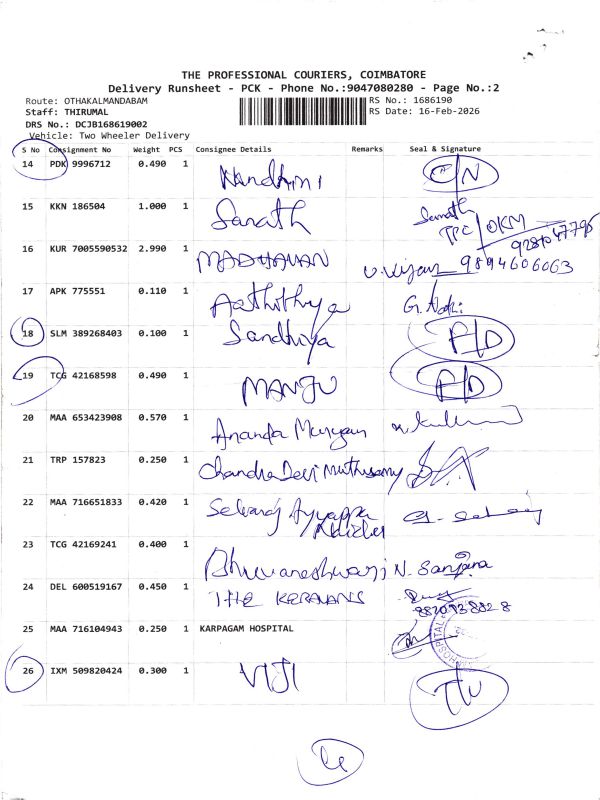 THE PROFESSIONAL COURIERS, COIMBATORE
Delivery Runsheet - PCK - Phone No.:9047080280 - Page No.:2
Route: OTHAKALMANDABAM
RS No.: 1686190
Staff: THIRUMAL
RS Date: 16-Feb-2026
DRS No.: DCJB168619002
Vehicle: Two Wheeler Delivery
S No Consignment No Weight PCS Consignee Details Remarks Seal & Signature
14 PDK 9996712 0.490 1 Nandhini
15 KKN 186504 1.000 1 Sarath Sarath
TPC/OKM
16 KUR 7005590532 2.990 1 MADHAVAN 9894606063
17 APK 775551 0.110 1 Aathithya
18 SLM 389268403 0.100 1 Sandhiya
19 TCG 42168598 0.490 1 MANJU
20 MAA 653423908 0.570 1 Ananda Murugan
21 TRP 157823 0.250 1 Chandra Devi Muthusamy
22 MAA 716651833 0.420 1 Selvaraj Ayyappa
23 TCG 42169241 0.400 1 Bhuvaneshwari N. Sanjana
24 DEL 600519167 0.450 1 THE KERALANS
25 MAA 716104943 0.250 1 KARPAGAM HOSPITAL HOSPITAL
26 IXM 509820424 0.300 1 VIJI